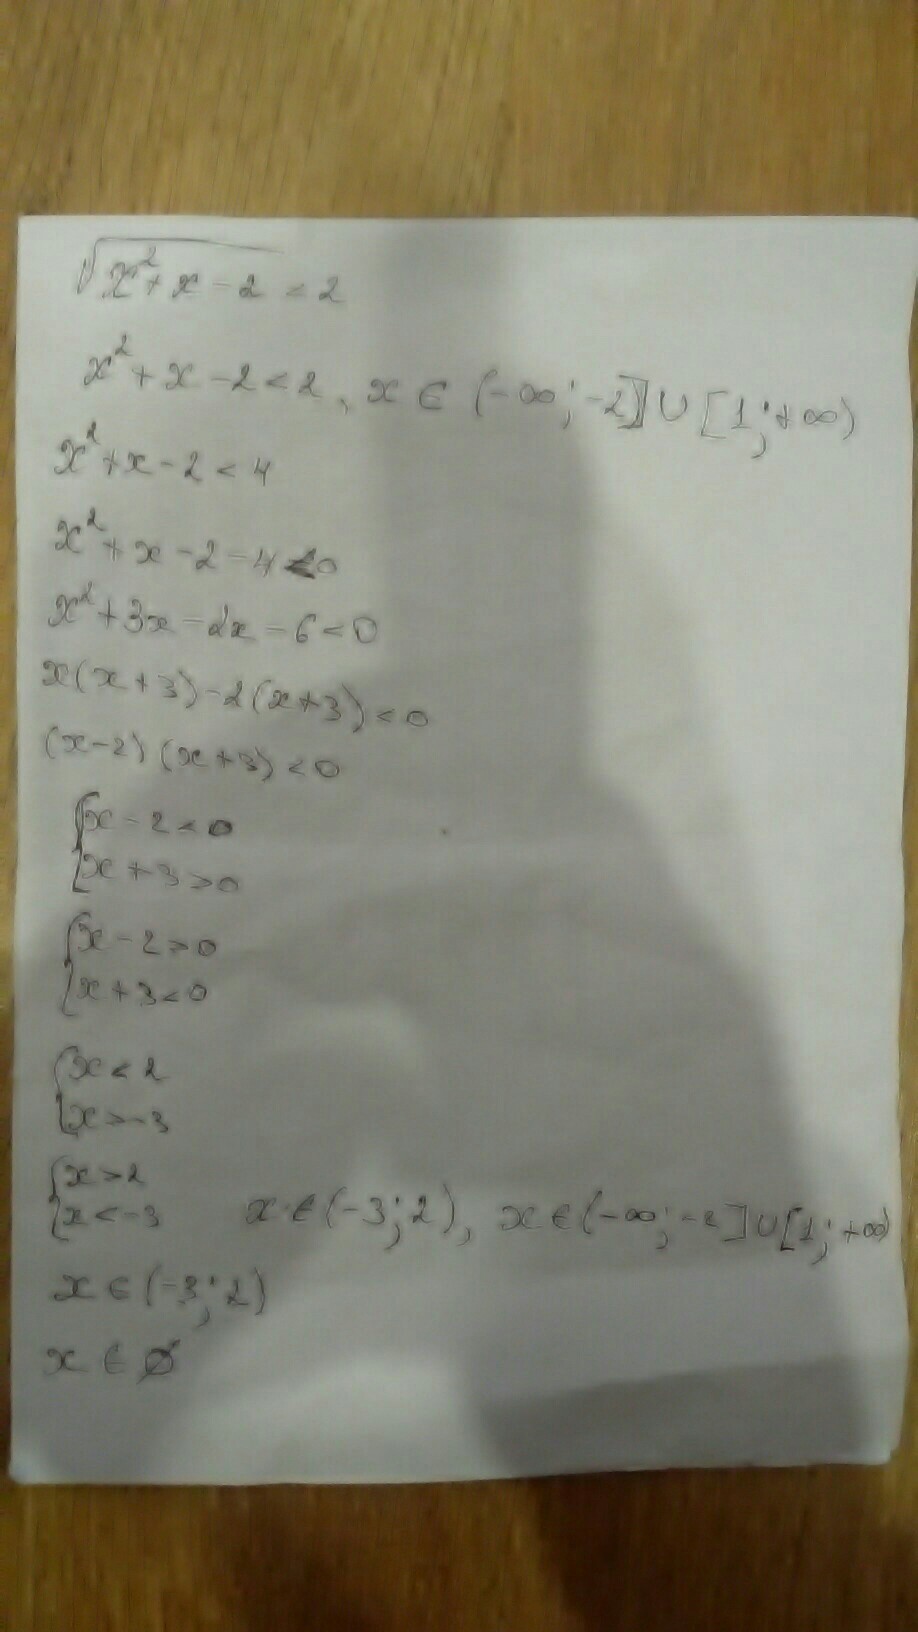 √(x²+x-2) < 2
x²+x-2<2, x ∈ (-∞;-2]∪[1;+∞)
x²+x-2<4
x²+x-2-4<0
x²+3x-2x-6<0
x(x+3)-2(x+3)<0
(x-2)(x+3)<0
{x-2<0
x+3>0
{x-2>0
x+3<0
{x<2
x>-3
{x>2
x<-3 x∈(-3;2), x∈(-∞;-2]∪[1;+∞)
x∈(-3;2)
x∈∅